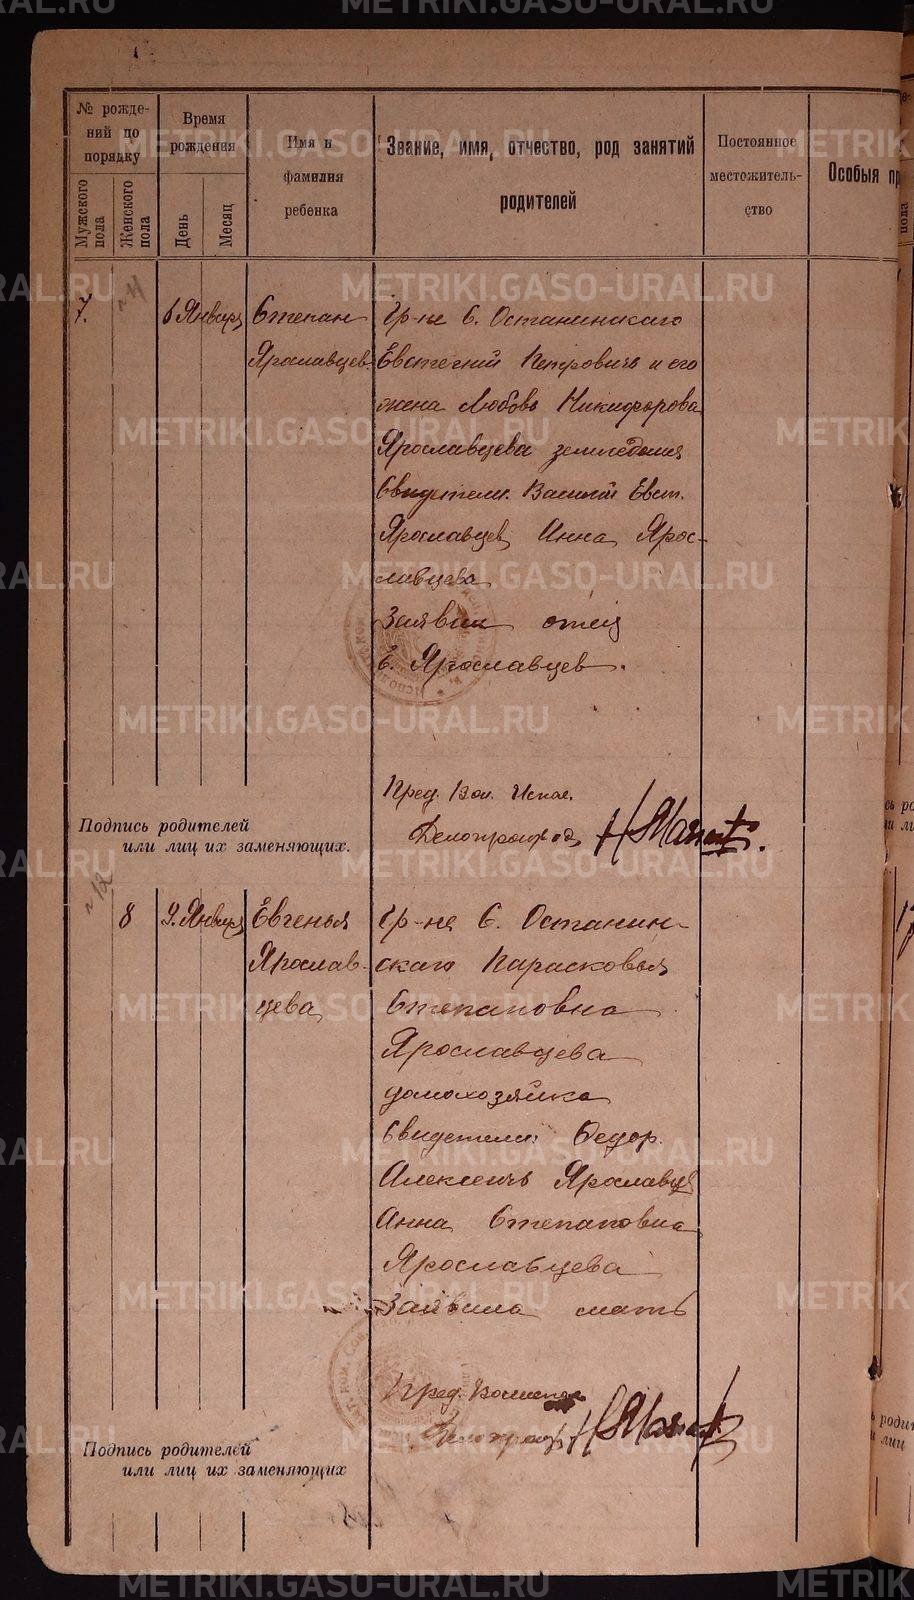 METRIKI.GASO-URAL.RU
№ рожде-
ний по
порядку
Мужского
пола
Женского
пола
Время
рождения
День
Месяц
Имя и
фамилия
ребенка
Звание, имя, отчество, род занятий
родителей
Постоянное
местожитель-
ство
Особыя пр
7.
6 Января
Степан
Ярославцев
Гр-не С. Останинскаго
Евстегний Петровичъ и его
жена Любовь Никифорова
Ярославцева земледелия
Свидетели. Василий Евст.
Ярославцев Анна Ярос-
лавцева
Заявил отец
Е. Ярославцев.
Пред. Вол. Испол.
Делопроизвод
Подпись родителей
или лиц их заменяющих.
№ 12
8
9. Января
Евгенья
Ярослав-
цева
Гр-не С. Останин-
скаго Парасковья
Степановна
Ярославцева
домохозяйка
Свидетели: Федор.
Алексеичъ Ярославце
Анна Степановна
Ярославцева
Заявила мать
Пред. Волиспол
Делопроизв
Подпись родителей
или лиц их заменяющих